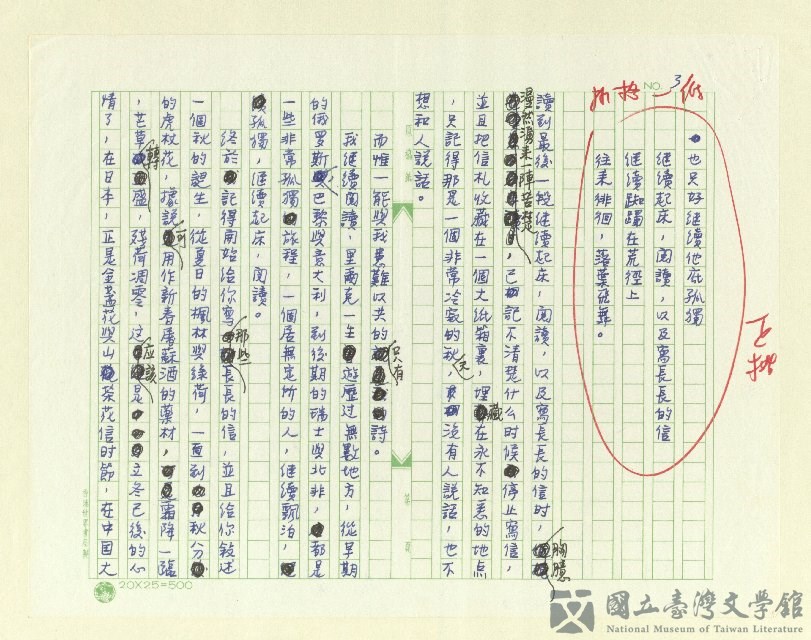 NO. 3
也只好繼續他底孤獨
繼續起床，閱讀，以及寫長長的信
繼續踟躅在荒徑上
往來徘徊，落葉飛舞。
讀到最後一段繼續起床，閱讀，以及寫長長的信時，胸臆
漫然湧來一陣苦楚，已記不清楚什么时候停止寫信，
並且把信札收藏在一個大纸箱裏，埋藏在永不知悉的地点
，只記得那是一個非常冷寂的秋天，沒有人說話，也不
想和人說話。
而惟一能與我患難以共的只有詩。
我繼續閱讀，里爾克一生遊歷过無數地方，從早期
的俄罗斯、巴黎與意大利，到後期的瑞士與北非，都是
一些非常孤獨旅程，一個居無定所的人，繼續飄泊，
孤獨，繼續起床，閱讀。
終於記得開始給你寫那些長長的信，並且給你敍述
一個秋的誕生，從夏日的楓林與綠荷，一直到秋分
的虎杖花，據說可用作新春屠蘇酒的藥材，霜降一臨
，芒草轉盛，殘荷凋零，过应該是立冬已後的心
情了，在日本，正是金盞花與山茶花信时節，在中国大
20X25=500
國立臺灣文學館
National Museum of Taiwan Literature